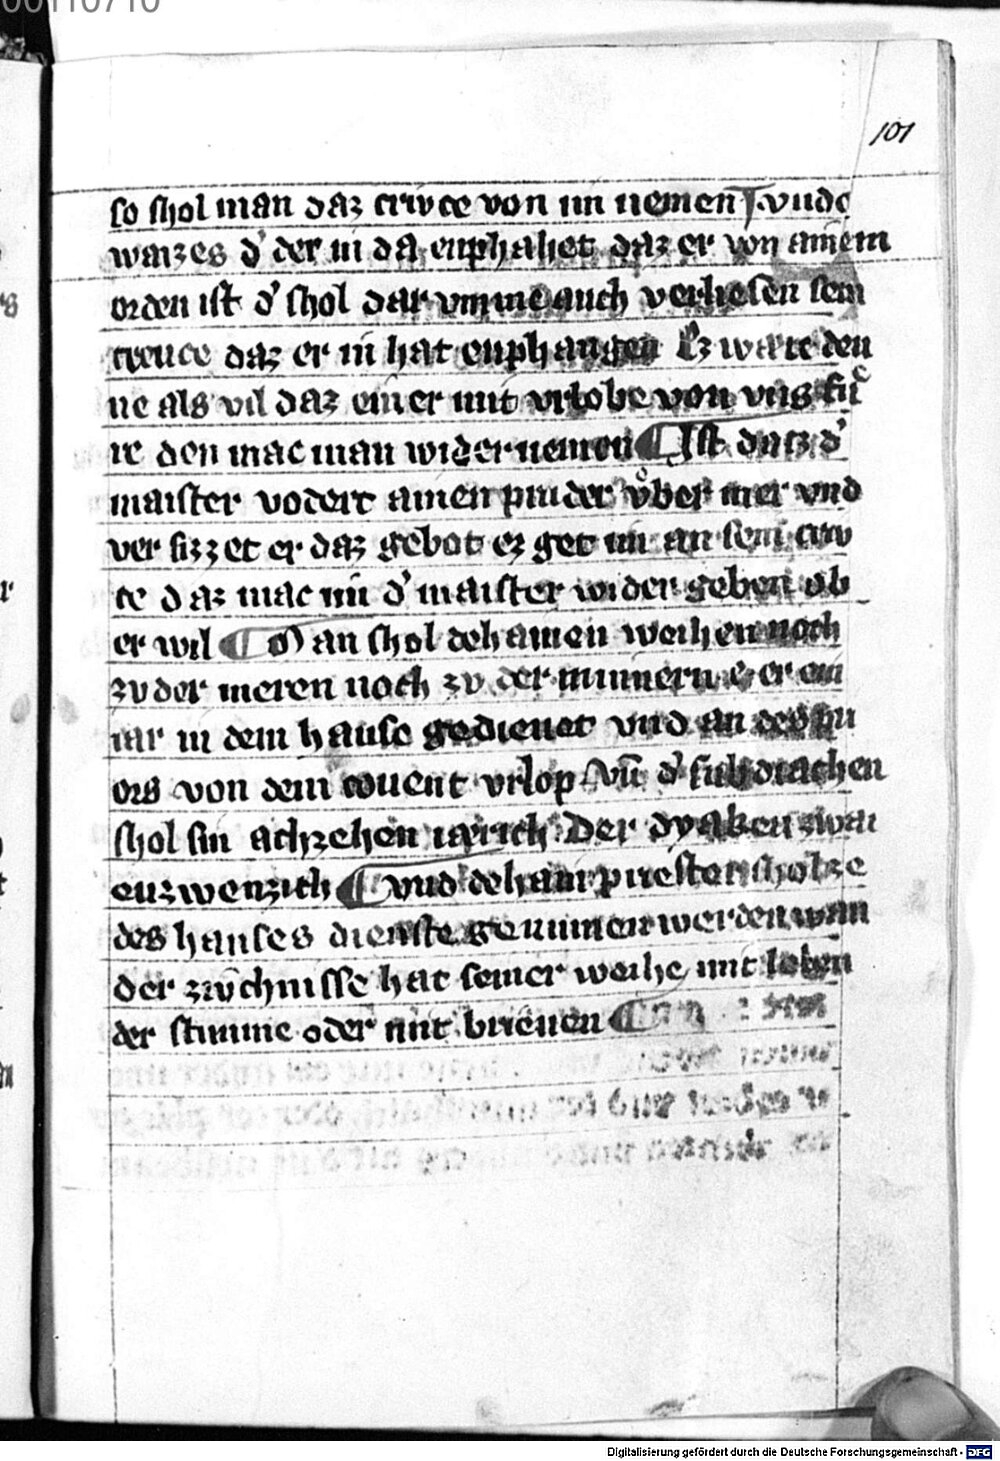 00110710
101
so shol man daz crivce von im nemen vnde
waizes d' der in da enphahet daz er von ainem
orden ist d' shol dar vmme auch verliesen sein
creuce daz er in hat enphangen Ez ware den
ne als vil daz einer mit vrlobe von vns fuͤ
re den mac man wider nemen ¶ Ist datz d'
maister vodert ainen pruder vͦber mer vnd
ver sizzet er daz gebot ez get im an sein criv
ce daz mac im d' maister wider geben ob
er wil ¶ Man shol dehainen weihen noch
zv der meren noch zv der minnern e er ein
iar in dem hause gedienet vnd an des pri
ors von dem couent vrlop Vn̄ d' subdiachen
shol sin achzehen iarich Der dyaken zwai
enzwenzich ¶ vnd dehain priester shol ze
des hauses dienste genumen werden wan
der zivchnisse hat seiner weihe mit leben
der stimme oder mit brieuen ¶
Digitalisierung gefördert durch die Deutsche Forschungsgemeinschaft - DFG